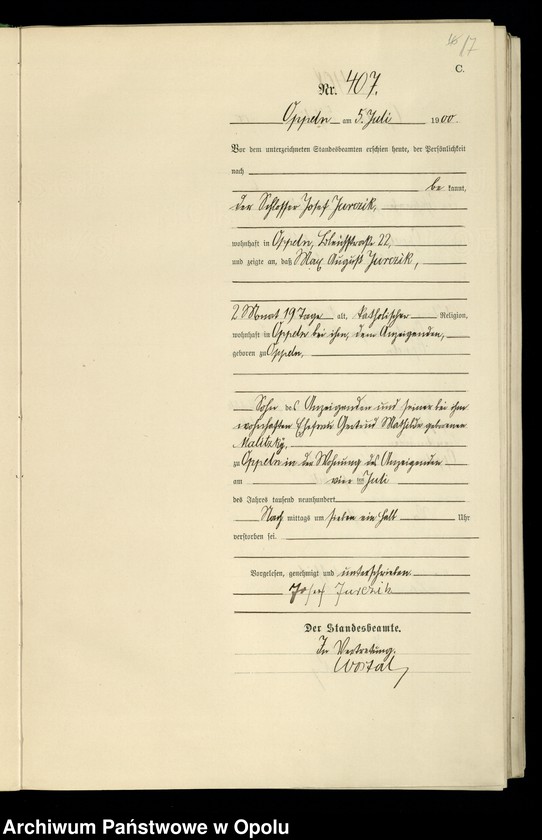 16 17
C.
Nr. 407.
Oppeln am 5. Juli 1900
Vor dem unterzeichneten Standesbeamten erschien heute, der Persönlichkeit
nach
be kannt,
der Schlosser Josef Jurczik,
wohnhaft in Oppeln, Bleichstraße 22,
und zeigte an, daß Max August Jurczik,
2 Monat 19 Tage alt, katholischer Religion,
wohnhaft in Oppeln bei ihm, dem Anzeigenden,
geboren zu Oppeln,
Sohn des Anzeigenden und seiner bei ihm
wohnhaften Ehefrau Gertrud Mathilde geborenen
Malitzky,
zu Oppeln in der Wohnung des Anzeigenden
am vier ten Juli
des Jahres tausend neunhundert
Nach mittags um sieben ein halb Uhr
verstorben sei.
Vorgelesen, genehmigt und unterschrieben.
Josef Jurczik
Der Standesbeamte.
In Vertretung.
Archiwum Państwowe w Opolu